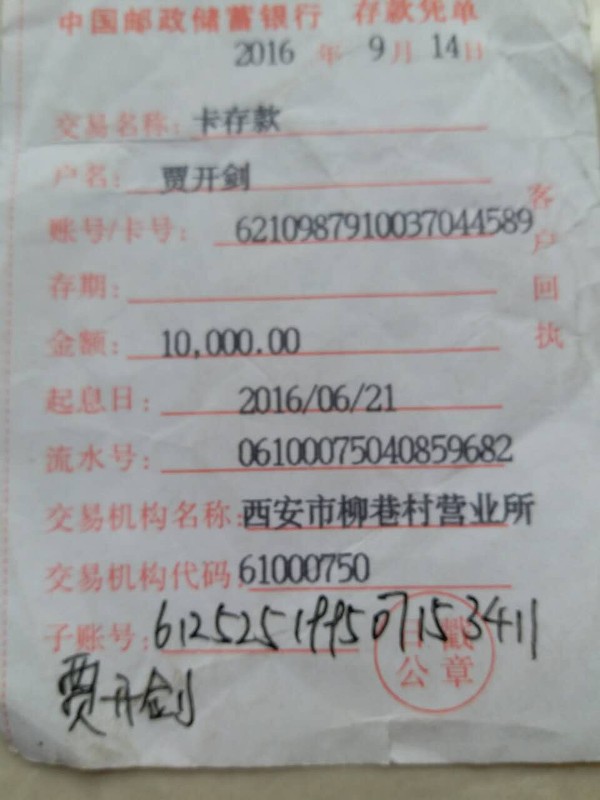 中国邮政储蓄银行 存款凭单
2016 年 9 月 14 日
交易名称: 卡存款
户名: 贾开剑
账号/卡号: 6210987910037044589
存期:
金额: 10,000.00
起息日: 2016/06/21
流水号: 061000750408596​82
交易机构名称: 西安市柳巷村营业所
交易机构代码: 61000750
子账号: 612525199507153411
贾开剑
日戳
公章
客户回执